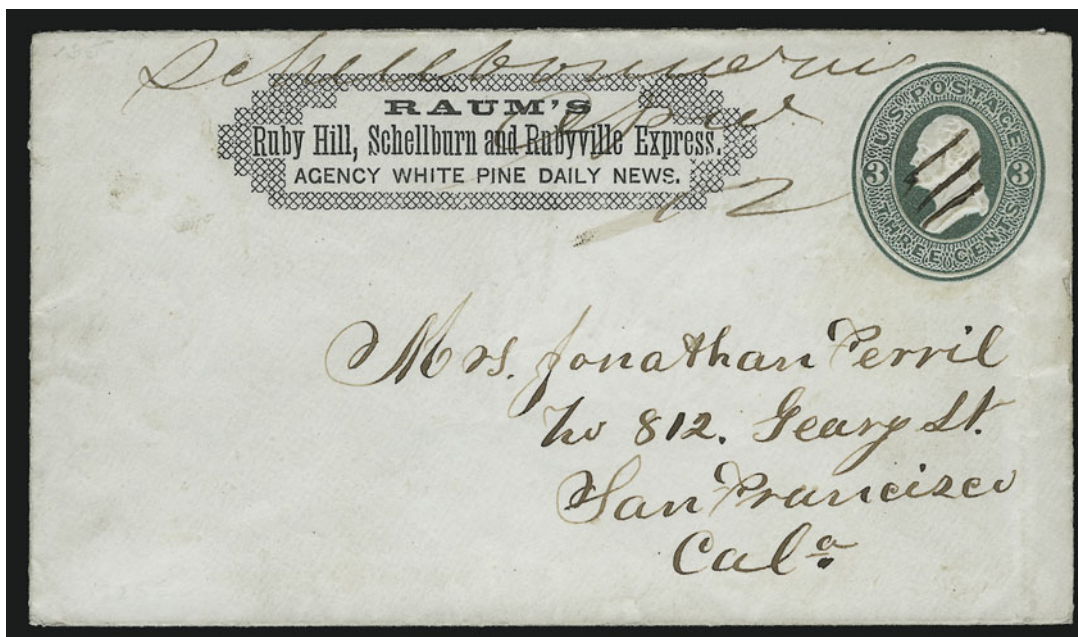 Schellbourne
RAUM'S
Ruby Hill, Schellburn and Rubyville Express.
AGENCY WHITE PINE DAILY NEWS.
12
U.S. POSTAGE
3 3
THREE CENTS
Mrs. Jonathan Perril
No 812. Geary St.
San Francisco
Cala.